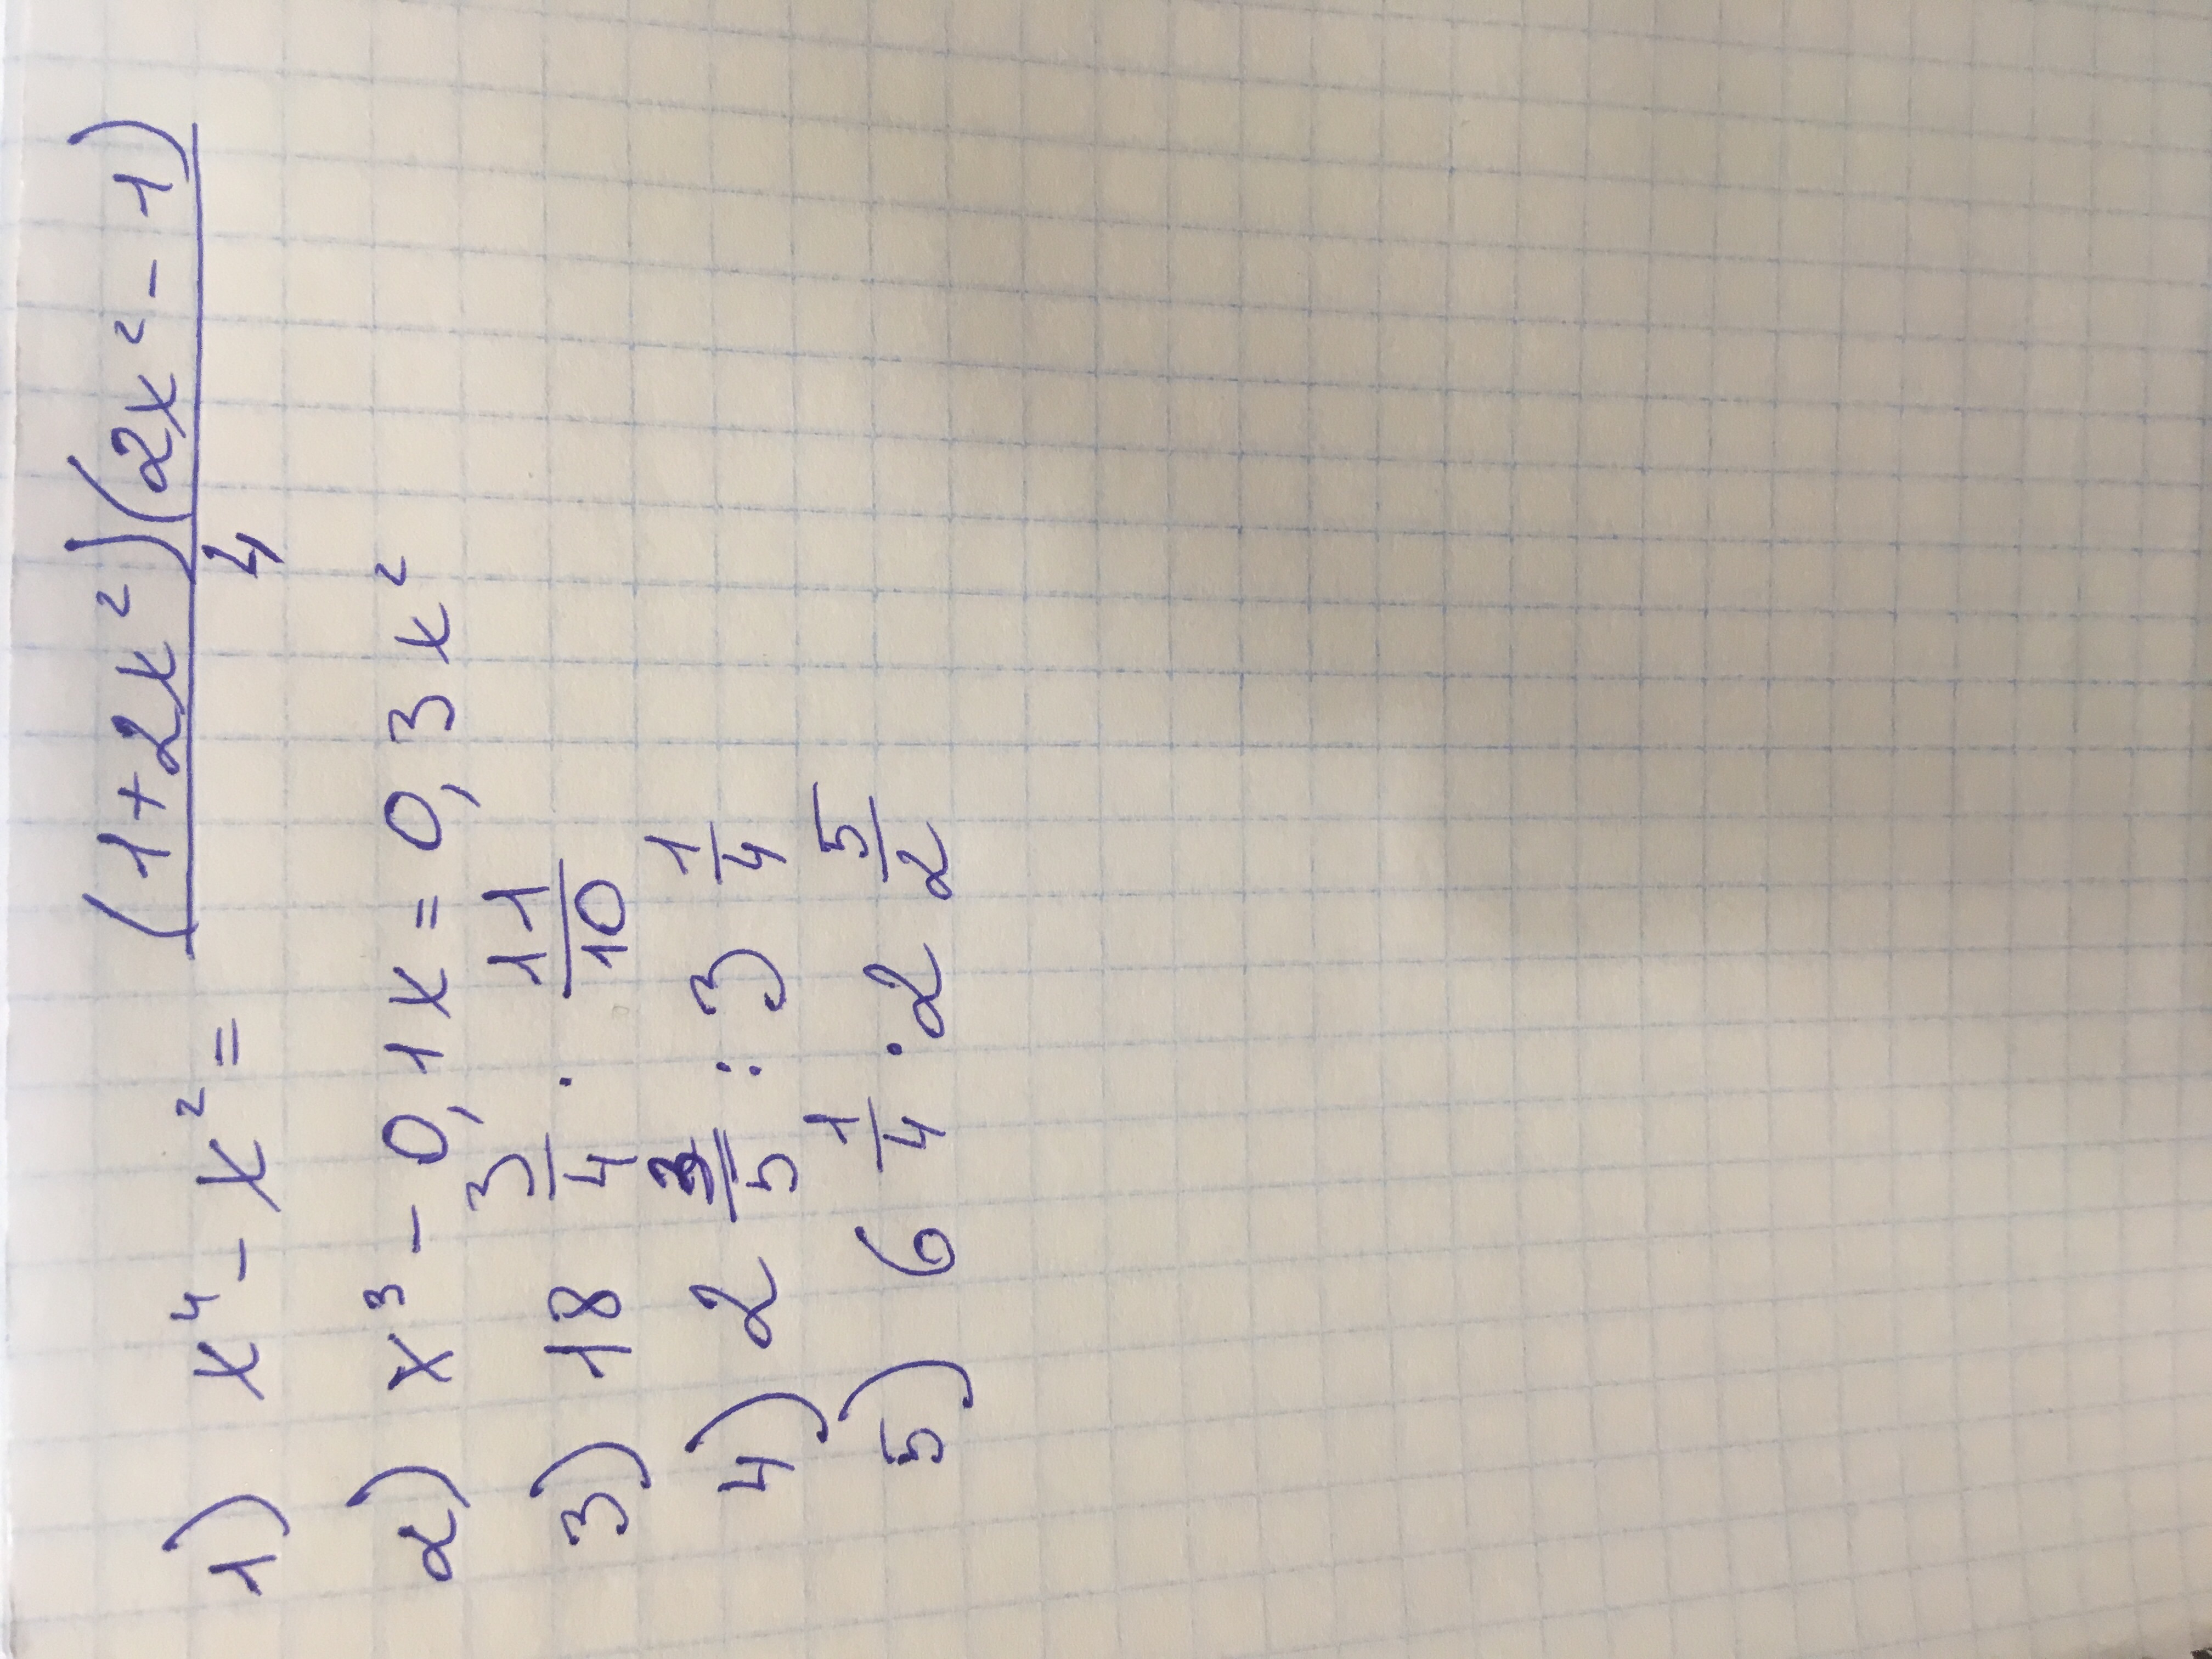 1) x⁴ - x² = (1+2x²)(2x² - 1)/4
2) x³ - 0,1x = 0,3x²
3) 18 3/4 · 11/10
4) 2 3/5 : 3 1/4
5) 6 1/4 · 2 5/2